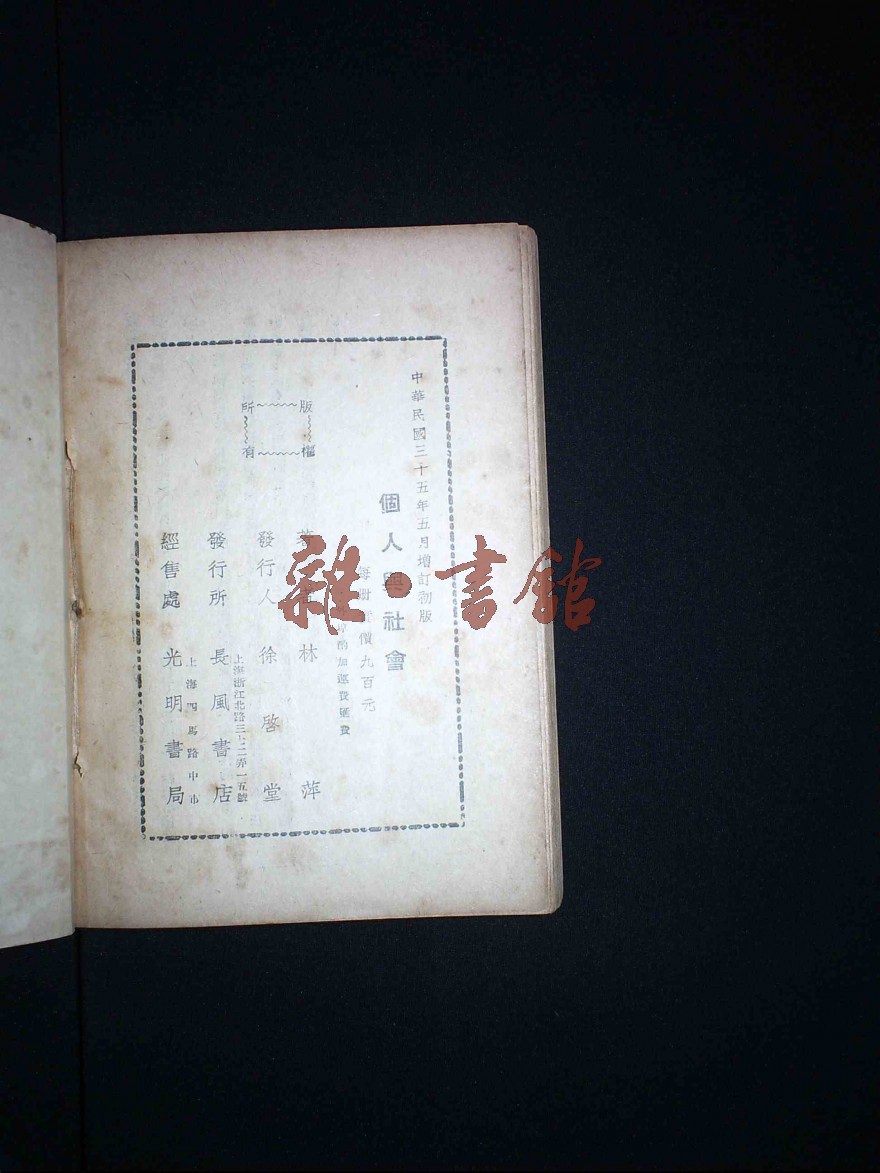 中華民國三十五年五月增訂初版
個人與社會
每冊實價九百元
酌加運費匯費
版權
所有
著者 林萍
發行人 徐啓堂
上海浙江北路三十二弄一五號
發行所 長風書店
上海四馬路中市
經售處 光明書局
雜·書館